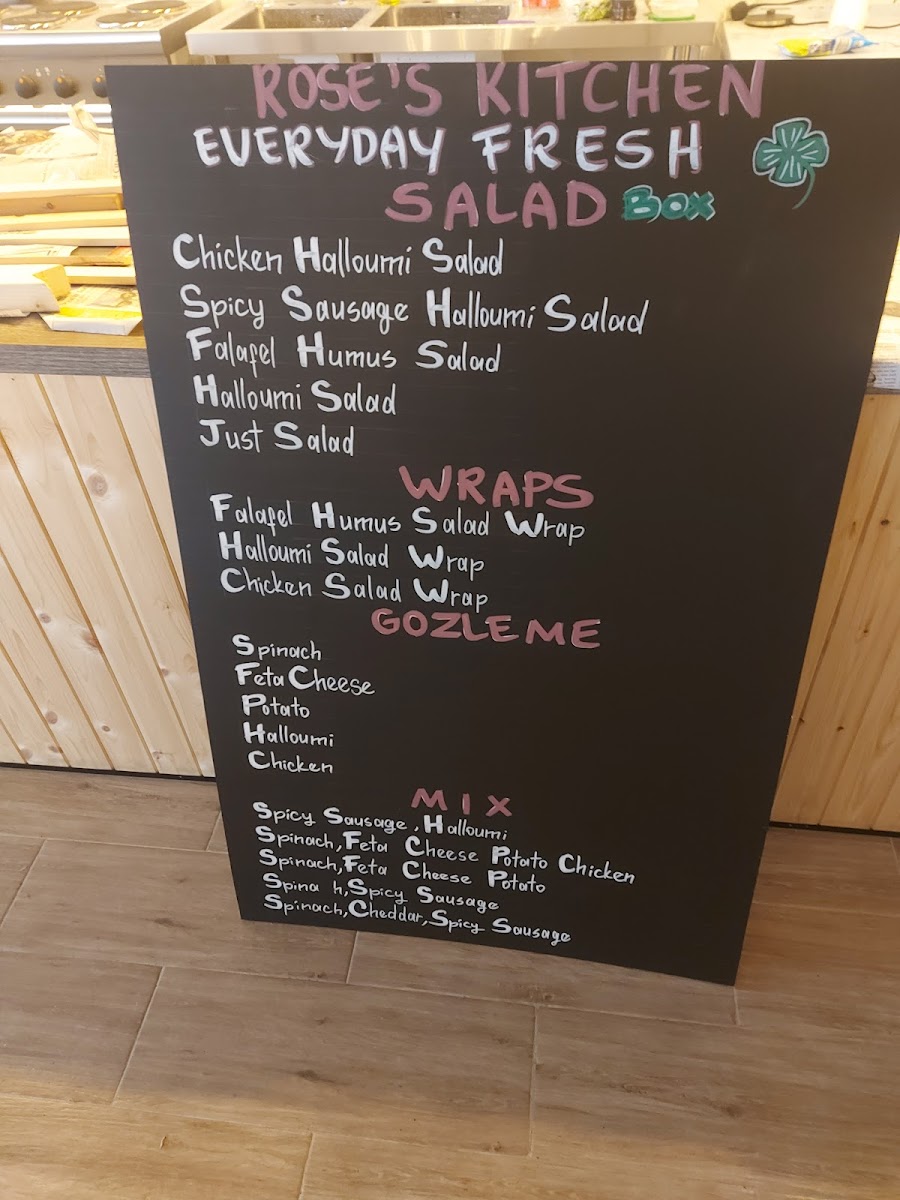 ROSE'S KITCHEN
EVERYDAY FRESH
SALAD BOX
Chicken Halloumi Salad
Spicy Sausage Halloumi Salad
Falafel Humus Salad
Halloumi Salad
Just Salad
WRAPS
Falafel Humus Salad Wrap
Halloumi Salad Wrap
Chicken Salad Wrap
GOZLEME
Spinach
Feta Cheese
Potato
Halloumi
Chicken
MIX
Spicy Sausage, Halloumi
Spinach, Feta Cheese Potato Chicken
Spinach, Feta Cheese Potato
Spina h, Spicy Sausage
Spinach, Cheddar, Spicy Sausage